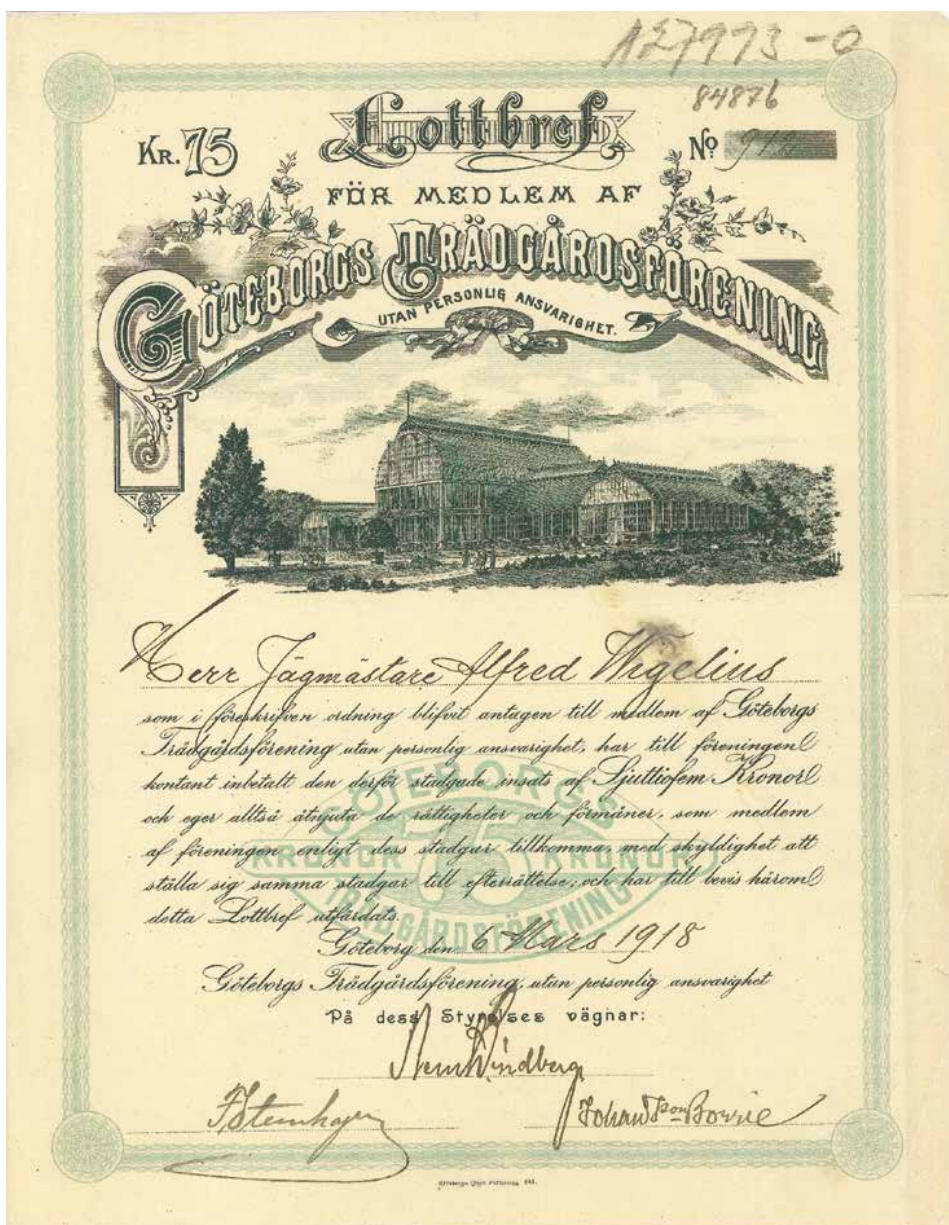 127993-0
84876
Lottbref
KR. 75
Nº 912
FÖR MEDLEM AF
GÖTEBORGS TRÄDGÅRDSFÖRENING
UTAN PERSONLIG ANSVARIGHET.
Herr Jägmästare Alfred Wigelius
som i föreskrifven ordning blifvit antagen till medlem af Göteborgs
Trädgårdsförening utan personlig ansvarighet, har till föreningen
kontant inbetalt den derför stadgade insats af Sjuttiofem Kronor
och eger alltså åtnjuta de rättigheter och förmåner, som medlem
af föreningen enligt dess stadgar tillkomma, med skyldighet att
ställa sig samma stadgar till efterrättelse; och har till bevis härom
detta Lottbref utfärdats.
GÖTEBORGS
KRONOR 75 KRONOR
TRÄDGÅRDSFÖRENING
Göteborg den 6 Mars 1918
Göteborgs Trädgårdsförening, utan personlig ansvarighet
På dess Styrelses vägnar:
Lindberg
Johan Bowie